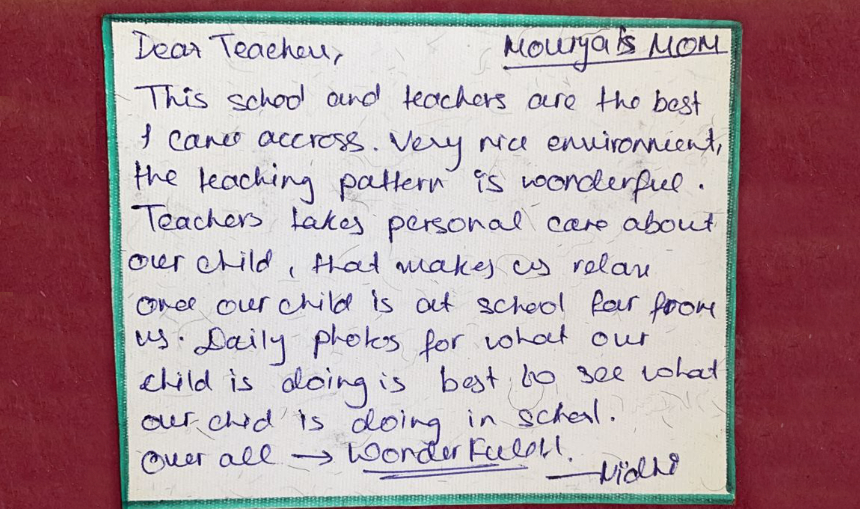 Dear Teacher, Mourya's MOM
This school and teachers are the best
I came accross. Very nice environment,
the teaching pattern is wonderful.
Teachers takes personal care about
our child, that makes us relax
once our child is at school far from
us. Daily photos for what our
child is doing is best to see what
our child is doing in school.
Over all → Wonderfull!!.
—Nidhi